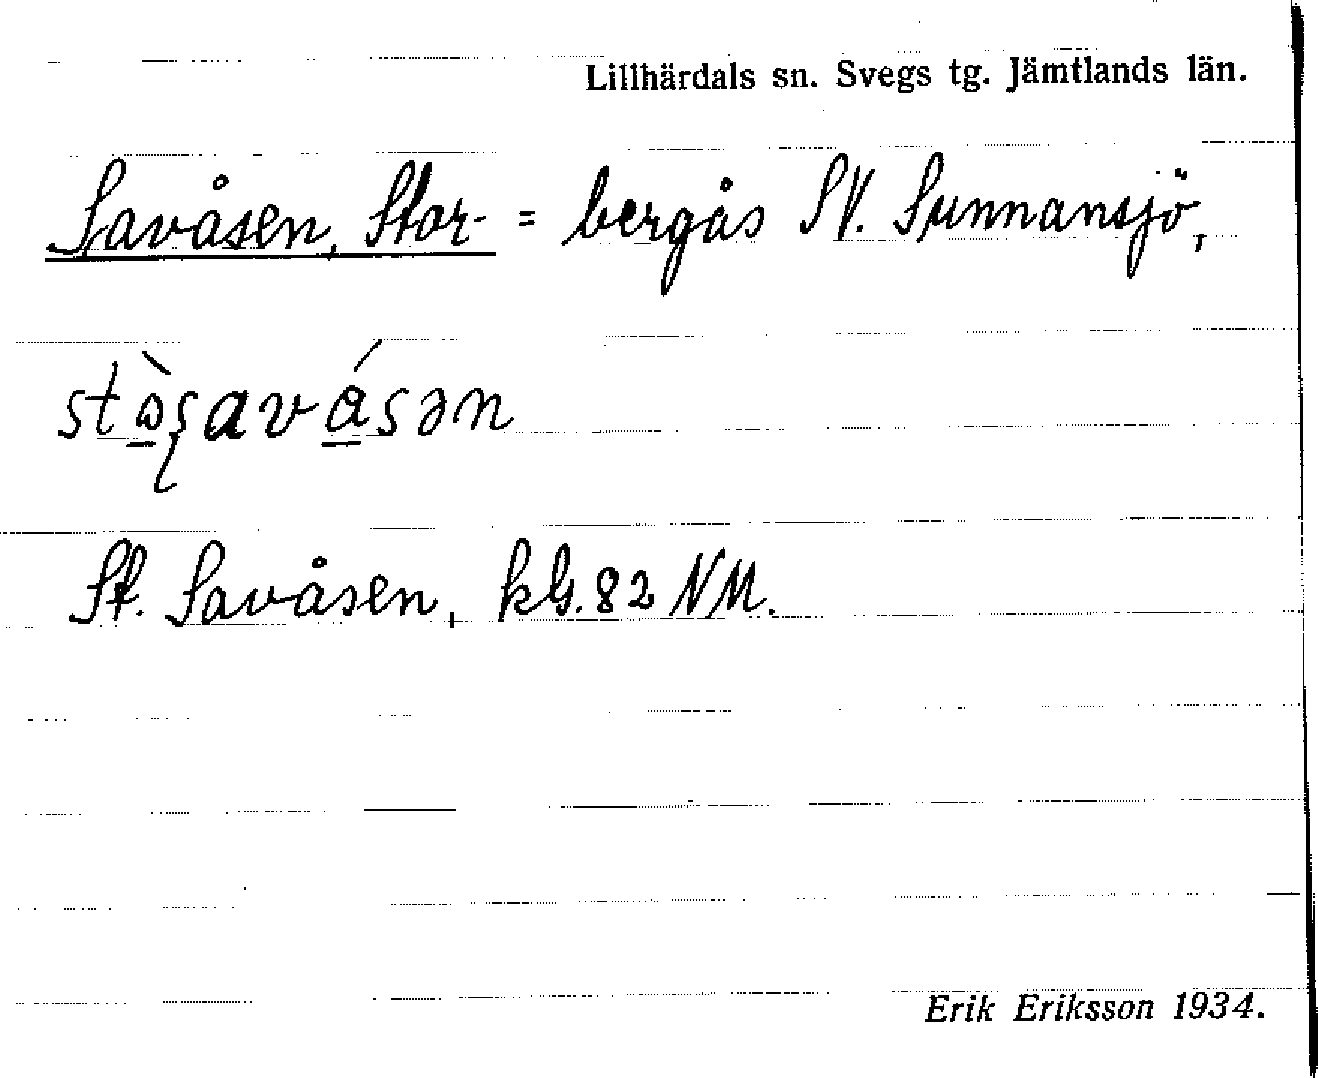 Lillhärdals sn. Svegs tg. Jämtlands län.
Savåsen, Stor- = bergås SV. Sunnansjö,
St. Savåsen, kbl. 82 NM.
Erik Eriksson 1934.